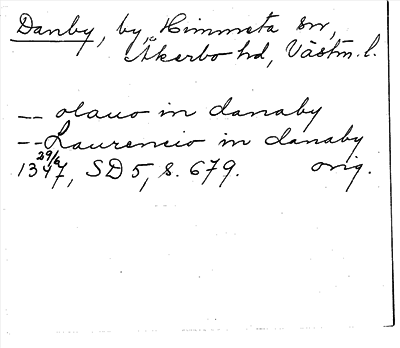 Danby, by, Himmeta sn,
Åkerbo hd, Västm. l.
-- olauo in danaby
-- Laurencio in danaby
29/6
1347, SD 5, s. 679. orig.